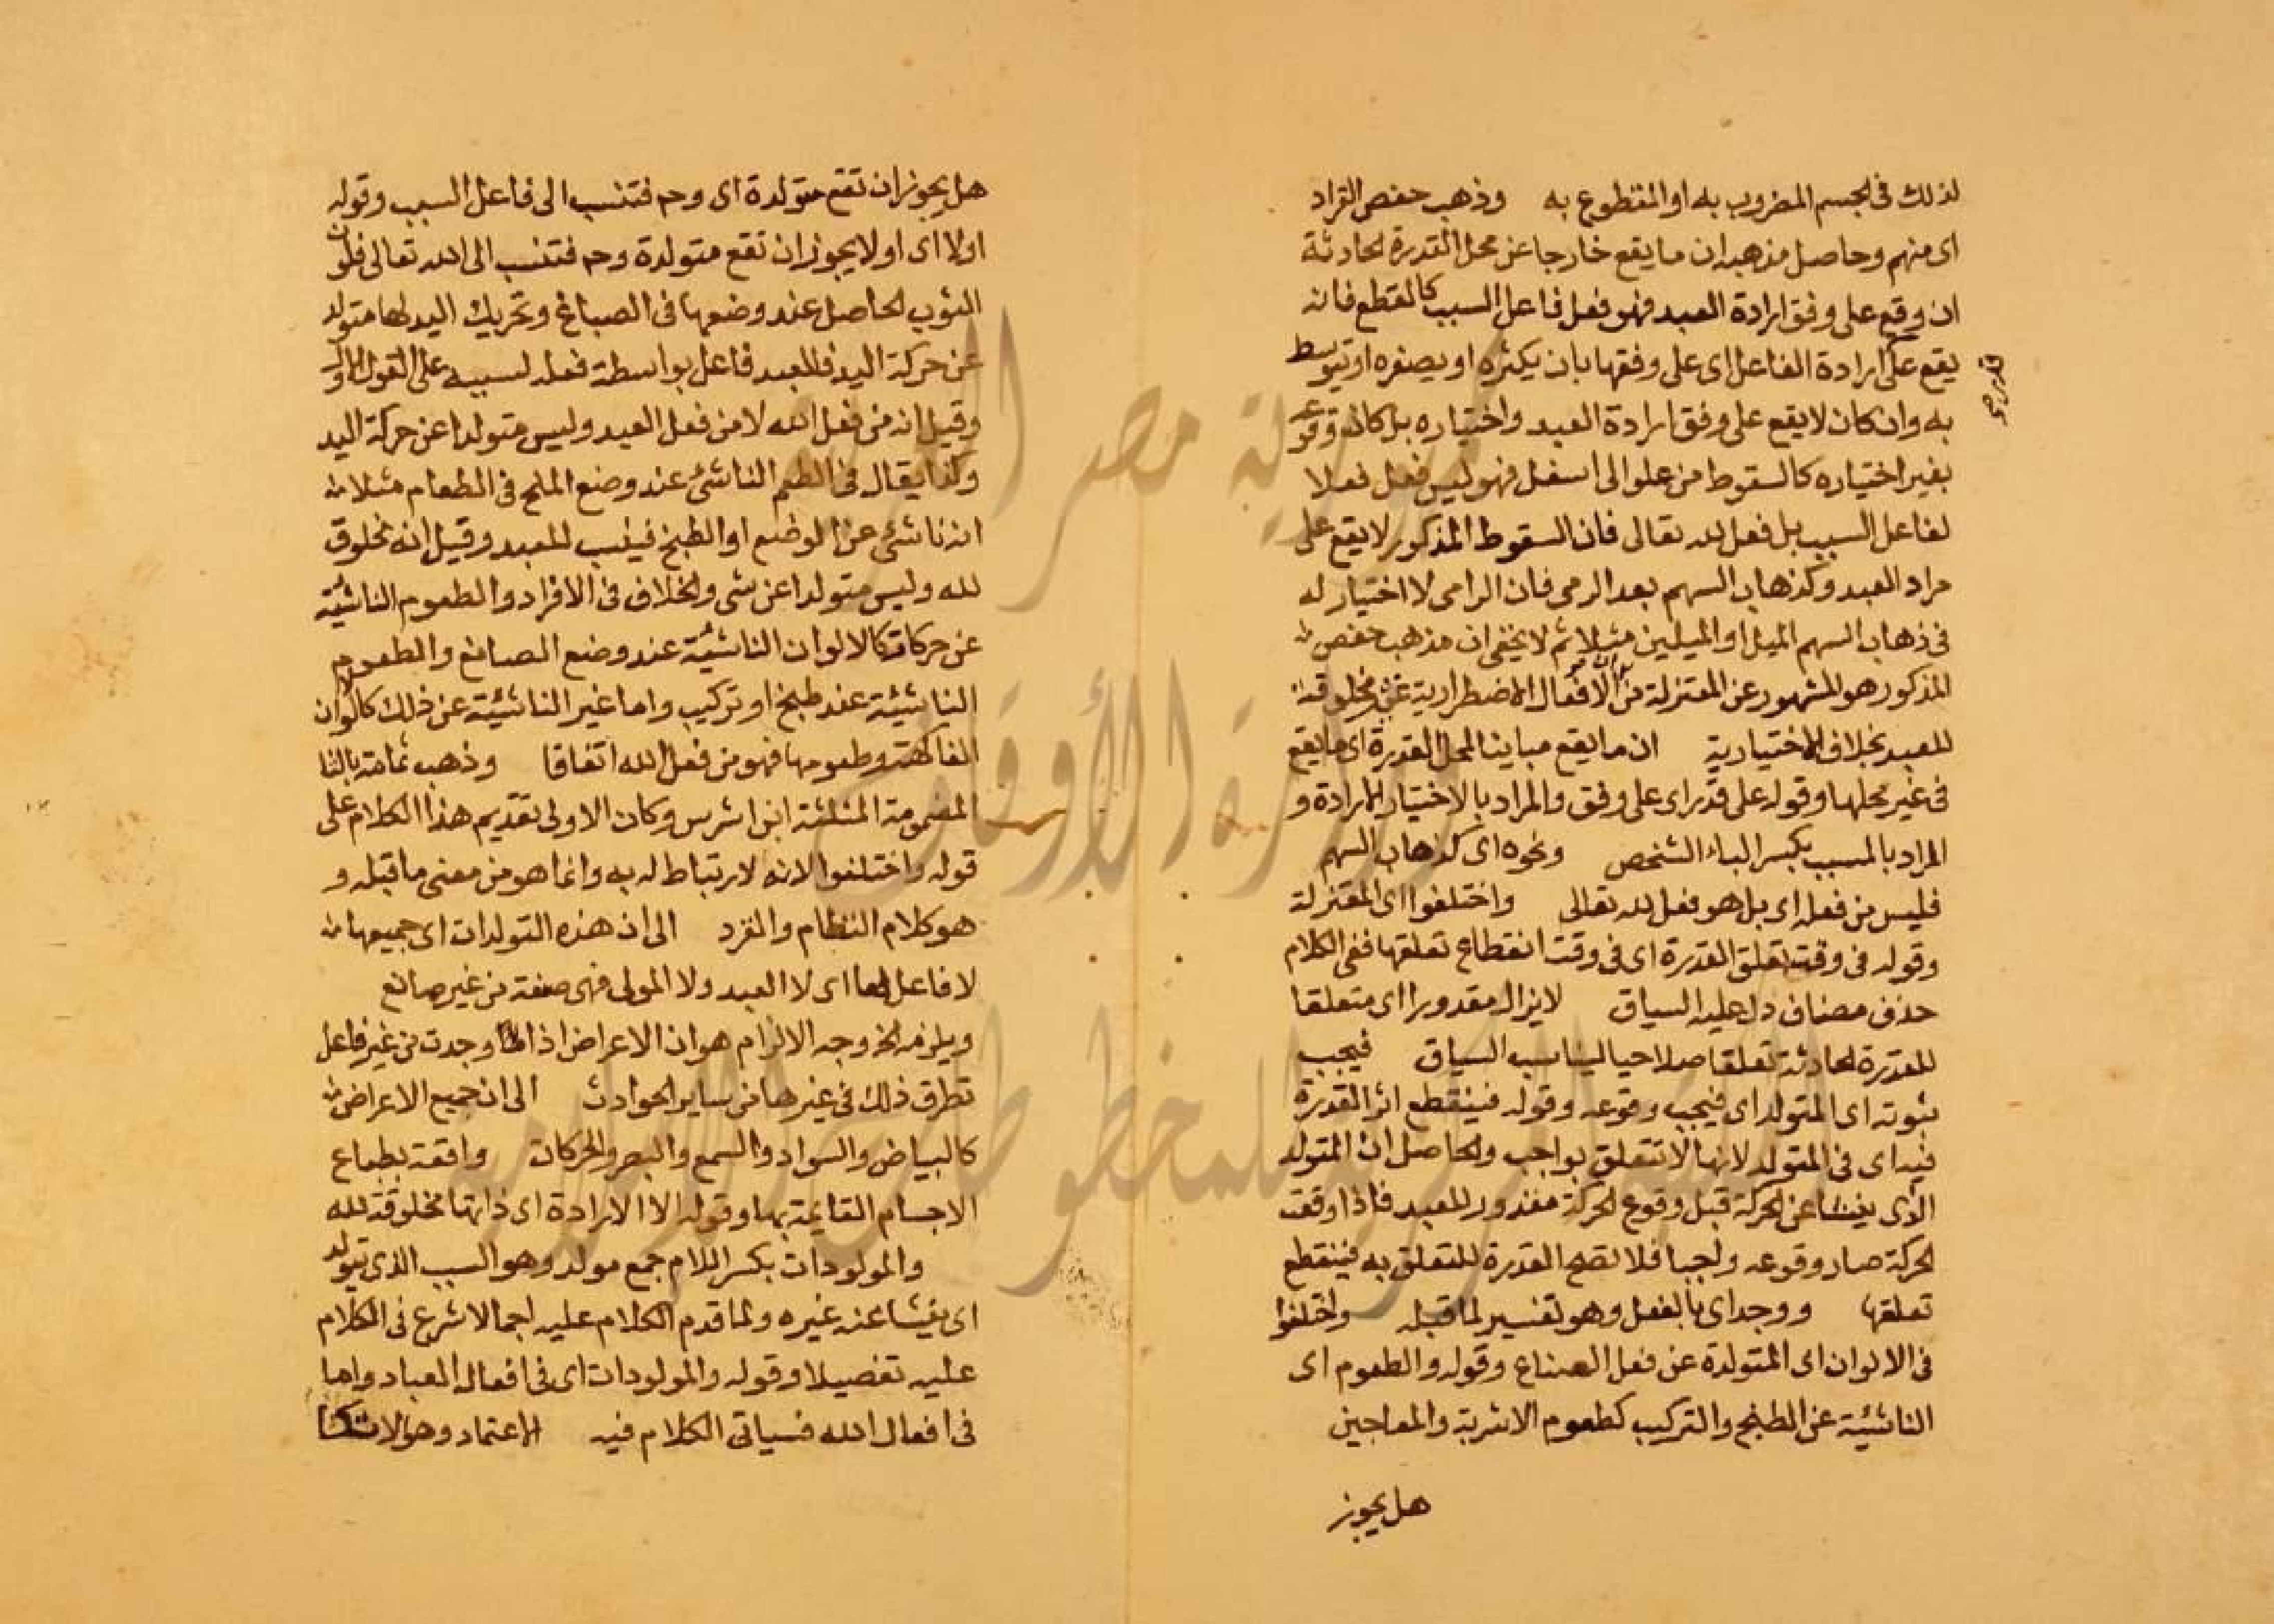 لذلك فى الجسم المضروب به او المقطوع به وذهب حفص القراد
اى منهم وحاصل مذهبه ان ما يقع خارجا عن محل القدرة الحادثة
ان وقع على وفق ارادة العبد فهو فعل فاعل السبب كالقطع فانه
يقع على ارادة الفاعل اى على وفقها بان يكثره او يصغره او يتوسط
به وان كان لا يقع على وفق ارادة العبد واختياره بل كان وقوعه
بغير اختياره كالسقوط من علو الى اسفل فهو ليس فعل فعلا
لفاعل السبب بل فعل لله تعالى فان السقوط المذكور لا يقع على
مراد العبد وكذهاب السهم بعد الرمى فان الرامى لا اختيار له
فى ذهاب السهم الميل او الميلين مثلا ثم لا يخفى ان مذهب حفص
المذكور هو المشهور عن المعتزلة من ان الافعال الاضطرارية غير مخلوقة
للعبد بخلاف الاختيارية ان ما يقع مباينا لمحل القدرة اى ما يقع
فى غير محلها وقوله على قدر اى على وفق والمراد بالاختيار الارادة و
المراد بالمسبب بكسر الباء الشخص ونحوه اى كذهاب السهم
فليس من فعله اى بل هو فعل لله تعالى واختلفوا اى المعتزلة
وقوله فى وقت تعلق القدرة اى فى وقت انقطاع تعلقها ففى الكلام
حذف مضاف دل عليه السياق لا يزال مقدورا اى متعلقا
للقدرة الحادثة تعلقا صلاحيا ليناسب السياق فيجب
ثبوته اى المتولد اى فيجب وقوعه وقوله فينقطع اثر القدرة
فيه اى فى المتولد لانها لا تتعلق بواجب والحاصل ان المتولد
الذى ينشا عن الحركة قبل وقوع الحركة مقدور للعبد فاذا وقعت
الحركة صار وقوعه واجبا فلا تصح القدرة للتعلق به فينقطع
تعلقها ووجد اى بالفعل وهو تفسير لما قبله واختلفوا
فى الالوان اى المتولدة عن فعل الصناع وقوله والطعوم اى
الناشئة عن الطبخ والتركيب كطعوم الاشربة والمعاجين
هل يجوز
هل يجوز ان تقع متولدة اى وح فتنسب الى فاعل السبب وقوله
اولا اى او لا يجوز ان تقع متولدة وح فتنسب الى الله تعالى فلون
الثوب الحاصل عند وضعها فى الصباغ وتحريك اليد لها متولد
عن حركة اليد فالعبد فاعل بواسطة فعله لسببه على القول الاول
وقيل انه من فعل الله لا من فعل العبد وليس متولدا عن حركة اليد
وكذا يقال فى الطعم الناشئ عند وضع الملح فى الطعام مثلا
انه ناشئ عن الوضع او الطبخ فينسب للعبد وقيل انه مخلوق
لله وليس متولدا عن شى والخلاف فى الافراد والطعوم الناشئة
عن حركات كالالوان الناشئة عند وضع الصانع والطعوم
الناشئة عند طبخ او تركيب واما غير الناشئة عن ذلك كالوان
الفاكهة وطعومها فهو من فعل الله اتفاقا وذهب ثمامة بالثا
المضمومة المثلثة ابن اشرس وكان الاولى تقديم هذا الكلام على
قوله واختلفوا لانه لا ارتباط له به وانما هو من معنى ما قبله و
هو كلام النظام والفرد الى ان هذه التولدات اى جميعها
لا فاعل لها اى لا العبد ولا المولى فهى صنعة من غير صانع
ويلزمه الخ وجه الالزام هو ان الاعراض اذا وجدت من غير فاعل
تطرق ذلك فى غيرها من ساير الحوادث الى ان جميع الاعراض
كالبياض والسواد والسمع والبصر والحركات واقعة بطباع
الاجسام القائمة بها وقوله الا الارادة اى ذاتها مخلوقة لله
والمولودات بكسر اللام جمع مولد وهو السبب الذى يتولد
اى ينشا عنه غيره ولما قدم الكلام عليه اجمالا شرع فى الكلام
عليه تفصيلا وقوله والمولودات اى فى افعال العباد واما
فى افعال الله فسياتى الكلام فيه الاعتماد وهو الاتكا